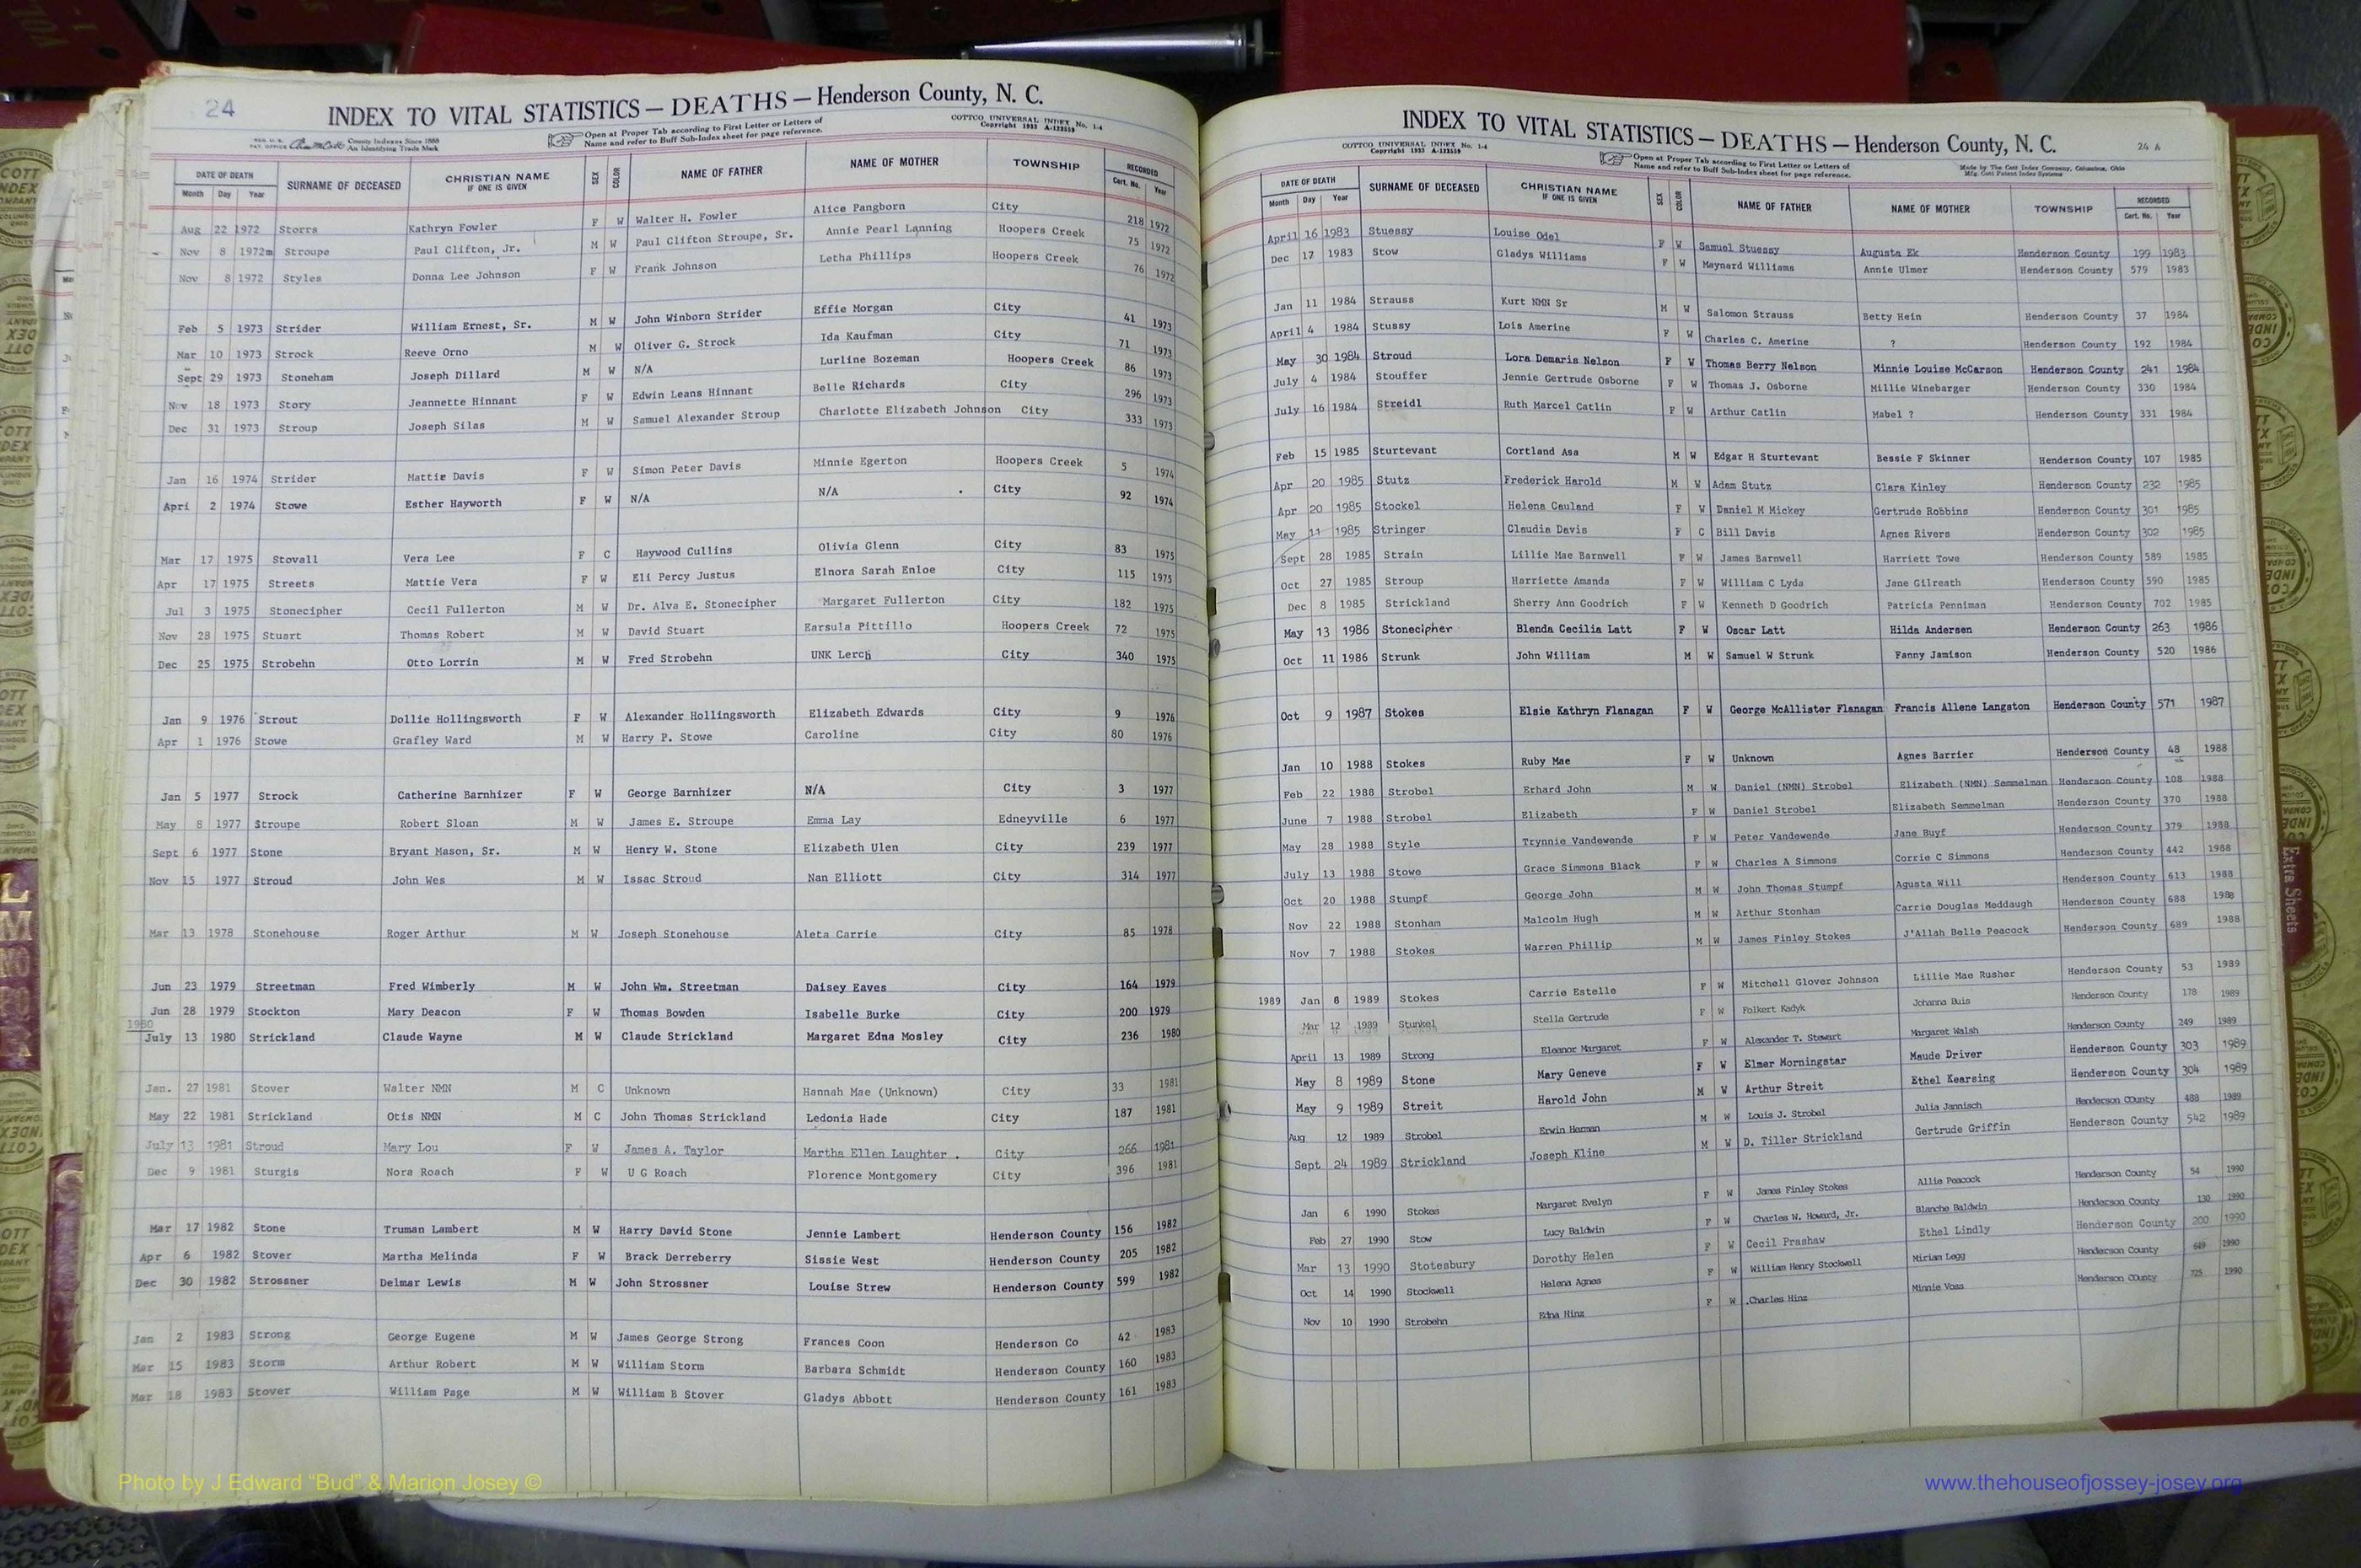 24
INDEX TO VITAL STATISTICS — DEATHS — Henderson County, N. C.
County Indexes Since 1888 An Identifying Trade Mark
Open at Proper Tab according to First Letter or Letters of Name and refer to Buff Sub-Index sheet for page reference.
COTTCO UNIVERSAL INDEX No. 1-4 Copyright 1933 A-123559
DATE OF DEATH Month Day Year SURNAME OF DECEASED CHRISTIAN NAME IF ONE IS GIVEN SEX COLOR NAME OF FATHER NAME OF MOTHER TOWNSHIP RECORDED Cert. No. Year
Aug 22 1972 Storrs Kathryn Fowler F W Walter H. Fowler Alice Pangborn City 218 1972
Nov 8 1972m Stroupe Paul Clifton, Jr. M W Paul Clifton Stroupe, Sr. Annie Pearl Lanning Hoopers Creek 75 1972
Nov 8 1972 Styles Donna Lee Johnson F W Frank Johnson Letha Phillips Hoopers Creek 76 1972
Feb 5 1973 Strider William Ernest, Sr. M W John Winborn Strider Effie Morgan City 41 1973
Mar 10 1973 Strock Reeve Orno M W Oliver G. Strock Ida Kaufman City 71 1973
Sept 29 1973 Stoneham Joseph Dillard M W N/A Lurline Bozeman Hoopers Creek 86 1973
Nov 18 1973 Story Jeannette Hinnant F W Edwin Leans Hinnant Belle Richards City 296 1973
Dec 31 1973 Stroup Joseph Silas M W Samuel Alexander Stroup Charlotte Elizabeth Johnson City 333 1973
Jan 16 1974 Strider Mattie Davis F W Simon Peter Davis Minnie Egerton Hoopers Creek 5 1974
April 2 1974 Stowe Esther Hayworth F W N/A N/A City 92 1974
Mar 17 1975 Stovall Vera Lee F C Haywood Cullins Olivia Glenn City 83 1975
Apr 17 1975 Streets Mattie Vera F W Eli Percy Justus Elnora Sarah Enloe City 115 1975
Jul 3 1975 Stonecipher Cecil Fullerton M W Dr. Alva E. Stonecipher Margaret Fullerton City 182 1975
Nov 28 1975 Stuart Thomas Robert M W David Stuart Earsula Pittillo Hoopers Creek 72 1975
Dec 25 1975 Strobehn Otto Lorrin M W Fred Strobehn UNK Lerch City 340 1975
Jan 9 1976 Strout Dollie Hollingsworth F W Alexander Hollingsworth Elizabeth Edwards City 9 1976
Apr 1 1976 Stowe Grafley Ward M W Harry P. Stowe Caroline City 80 1976
Jan 5 1977 Strock Catherine Barnhizer F W George Barnhizer N/A City 3 1977
May 8 1977 Stroupe Robert Sloan M W James E. Stroupe Emma Lay Edneyville 6 1977
Sept 6 1977 Stone Bryant Mason, Sr. M W Henry W. Stone Elizabeth Ulen City 239 1977
Nov 15 1977 Stroud John Wes M W Issac Stroud Nan Elliott City 314 1977
Mar 13 1978 Stonehouse Roger Arthur M W Joseph Stonehouse Aleta Carrie City 85 1978
Jun 23 1979 Streetman Fred Wimberly M W John Wm. Streetman Daisey Eaves City 164 1979
Jun 28 1979 Stockton Mary Deacon F W Thomas Bowden Isabelle Burke City 200 1979
1980
July 13 1980 Strickland Claude Wayne M W Claude Strickland Margaret Edna Mosley City 236 1980
Jan. 27 1981 Stover Walter NMN M C Unknown Hannah Mae (Unknown) City 33 1981
May 22 1981 Strickland Otis NMN M C John Thomas Strickland Ledonia Hade City 187 1981
July 13 1981 Stroud Mary Lou F W James A. Taylor Martha Ellen Laughter . City 266 1981
Dec 9 1981 Sturgis Nora Roach F W U G Roach Florence Montgomery City 396 1981
Mar 17 1982 Stone Truman Lambert M W Harry David Stone Jennie Lambert Henderson County 156 1982
Apr 6 1982 Stover Martha Melinda F W Brack Derreberry Sissie West Henderson County 205 1982
Dec 30 1982 Strossner Delmar Lewis M W John Strossner Louise Strew Henderson County 599 1982
Jan 2 1983 Strong George Eugene M W James George Strong Frances Coon Henderson Co 42 1983
Mar 15 1983 Storm Arthur Robert M W William Storm Barbara Schmidt Henderson County 160 1983
Mar 18 1983 Stover William Page M W William B Stover Gladys Abbott Henderson County 161 1983
Photo by J Edward “Bud” & Marion Josey ©
INDEX TO VITAL STATISTICS — DEATHS — Henderson County, N. C.
24 A
COTTCO UNIVERSAL INDEX No. 1-4 Copyright 1933 A-123559
Open at Proper Tab according to First Letter or Letters of Name and refer to Buff Sub-Index sheet for page reference.
Made by The Cott Index Company, Columbus, Ohio Mfg. Cott Patent Index Systems
DATE OF DEATH Month Day Year SURNAME OF DECEASED CHRISTIAN NAME IF ONE IS GIVEN SEX COLOR NAME OF FATHER NAME OF MOTHER TOWNSHIP RECORDED Cert. No. Year
April 16 1983 Stuessy Louise Odel F W Samuel Stuessy Augusta Ek Henderson County 199 1983
Dec 17 1983 Stow Gladys Williams F W Maynard Williams Annie Ulmer Henderson County 579 1983
Jan 11 1984 Strauss Kurt NMN Sr M W Salomon Strauss Betty Hein Henderson County 37 1984
April 4 1984 Stussy Lois Amerine F W Charles C. Amerine ? Henderson County 192 1984
May 30 1984 Stroud Lora Demaris Nelson F W Thomas Berry Nelson Minnie Louise McCarson Henderson County 241 1984
July 4 1984 Stouffer Jennie Gertrude Osborne F W Thomas J. Osborne Millie Winebarger Henderson County 330 1984
July 16 1984 Streidl Ruth Marcel Catlin F W Arthur Catlin Mabel ? Henderson County 331 1984
Feb 15 1985 Sturtevant Cortland Asa M W Edgar H Sturtevant Bessie F Skinner Henderson County 107 1985
Apr 20 1985 Stutz Frederick Harold M W Adam Stutz Clara Kinley Henderson County 232 1985
Apr 20 1985 Stockel Helena Cauland F W Daniel M Mickey Gertrude Robbins Henderson County 301 1985
May 11 1985 Stringer Claudia Davis F C Bill Davis Agnes Rivers Henderson County 302 1985
Sept 28 1985 Strain Lillie Mae Barnwell F W James Barnwell Harriett Towe Henderson County 589 1985
Oct 27 1985 Stroup Harriette Amanda F W William C Lyda Jane Gilreath Henderson County 590 1985
Dec 8 1985 Strickland Sherry Ann Goodrich F W Kenneth D Goodrich Patricia Penniman Henderson County 702 1985
May 13 1986 Stonecipher Blenda Cecilia Latt F W Oscar Latt Hilda Andersen Henderson County 263 1986
Oct 11 1986 Strunk John William M W Samuel W Strunk Fanny Jamison Henderson County 520 1986
Oct 9 1987 Stokes Elsie Kathryn Flanagan F W George McAllister Flanagan Francis Allene Langston Henderson County 571 1987
Jan 10 1988 Stokes Ruby Mae F W Unknown Agnes Barrier Henderson County 48 1988
Feb 22 1988 Strobel Erhard John M W Daniel (NMN) Strobel Elizabeth (NMN) Semmelman Henderson County 108 1988
June 7 1988 Strobel Elizabeth F W Daniel Strobel Elizabeth Semmelman Henderson County 370 1988
May 28 1988 Style Trynnie Vandewende F W Peter Vandewende Jane Buyf Henderson County 379 1988
July 13 1988 Stowe Grace Simmons Black F W Charles A Simmons Corrie C Simmons Henderson County 442 1988
Oct 20 1988 Stumpf George John M W John Thomas Stumpf Agusta Will Henderson County 613 1988
Nov 22 1988 Stonham Malcolm Hugh M W Arthur Stonham Carrie Douglas Meddaugh Henderson County 688 1988
Nov 7 1988 Stokes Warren Phillip M W James Finley Stokes J'Allah Belle Peacock Henderson County 689 1988
1989 Jan 6 1989 Stokes Carrie Estelle F W Mitchell Glover Johnson Lillie Mae Rusher Henderson County 53 1989
Mar 12 1989 Stunkel Stella Gertrude F W Folkert Kadyk Johanna Buis Henderson County 178 1989
April 13 1989 Strong Eleanor Margaret F W Alexander T. Stewart Margaret Walsh Henderson County 249 1989
May 8 1989 Stone Mary Geneve F W Elmer Morningstar Maude Driver Henderson County 303 1989
May 9 1989 Streit Harold John M W Arthur Streit Ethel Kearsing Henderson County 304 1989
Aug 12 1989 Strobel Erwin Herman M W Louis J. Strobel Julia Jannisch Henderson County 488 1989
Sept 24 1989 Strickland Joseph Kline M W D. Tiller Strickland Gertrude Griffin Henderson County 542 1989
Jan 6 1990 Stokes Margaret Evelyn F W James Finley Stokes Allie Peacock Henderson County 54 1990
Feb 27 1990 Stow Lucy Baldwin F W Charles W. Howard, Jr. Blanche Baldwin Henderson County 130 1990
Mar 13 1990 Stotesbury Dorothy Helen F W Cecil Prashaw Ethel Lindly Henderson County 200 1990
Oct 14 1990 Stockwell Helena Agnes F W William Henry Stockwell Miriam Legg Henderson County 649 1990
Nov 10 1990 Strobehn Edna Hinz F W .Charles Hinz Minnie Voss Henderson County 725 1990
Extra Sheets
www.thehouseofjossey-josey.org